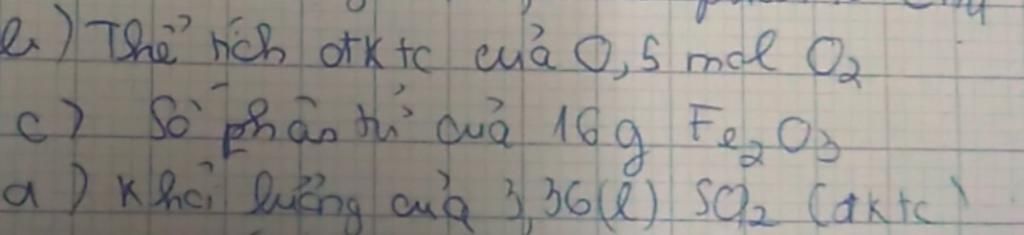 b) Thể tích đktc của 0,5 mol O2
c) Số phân tử của 16g Fe2O3
a) Khối lượng của 3,36(l) SO2 (đktc)